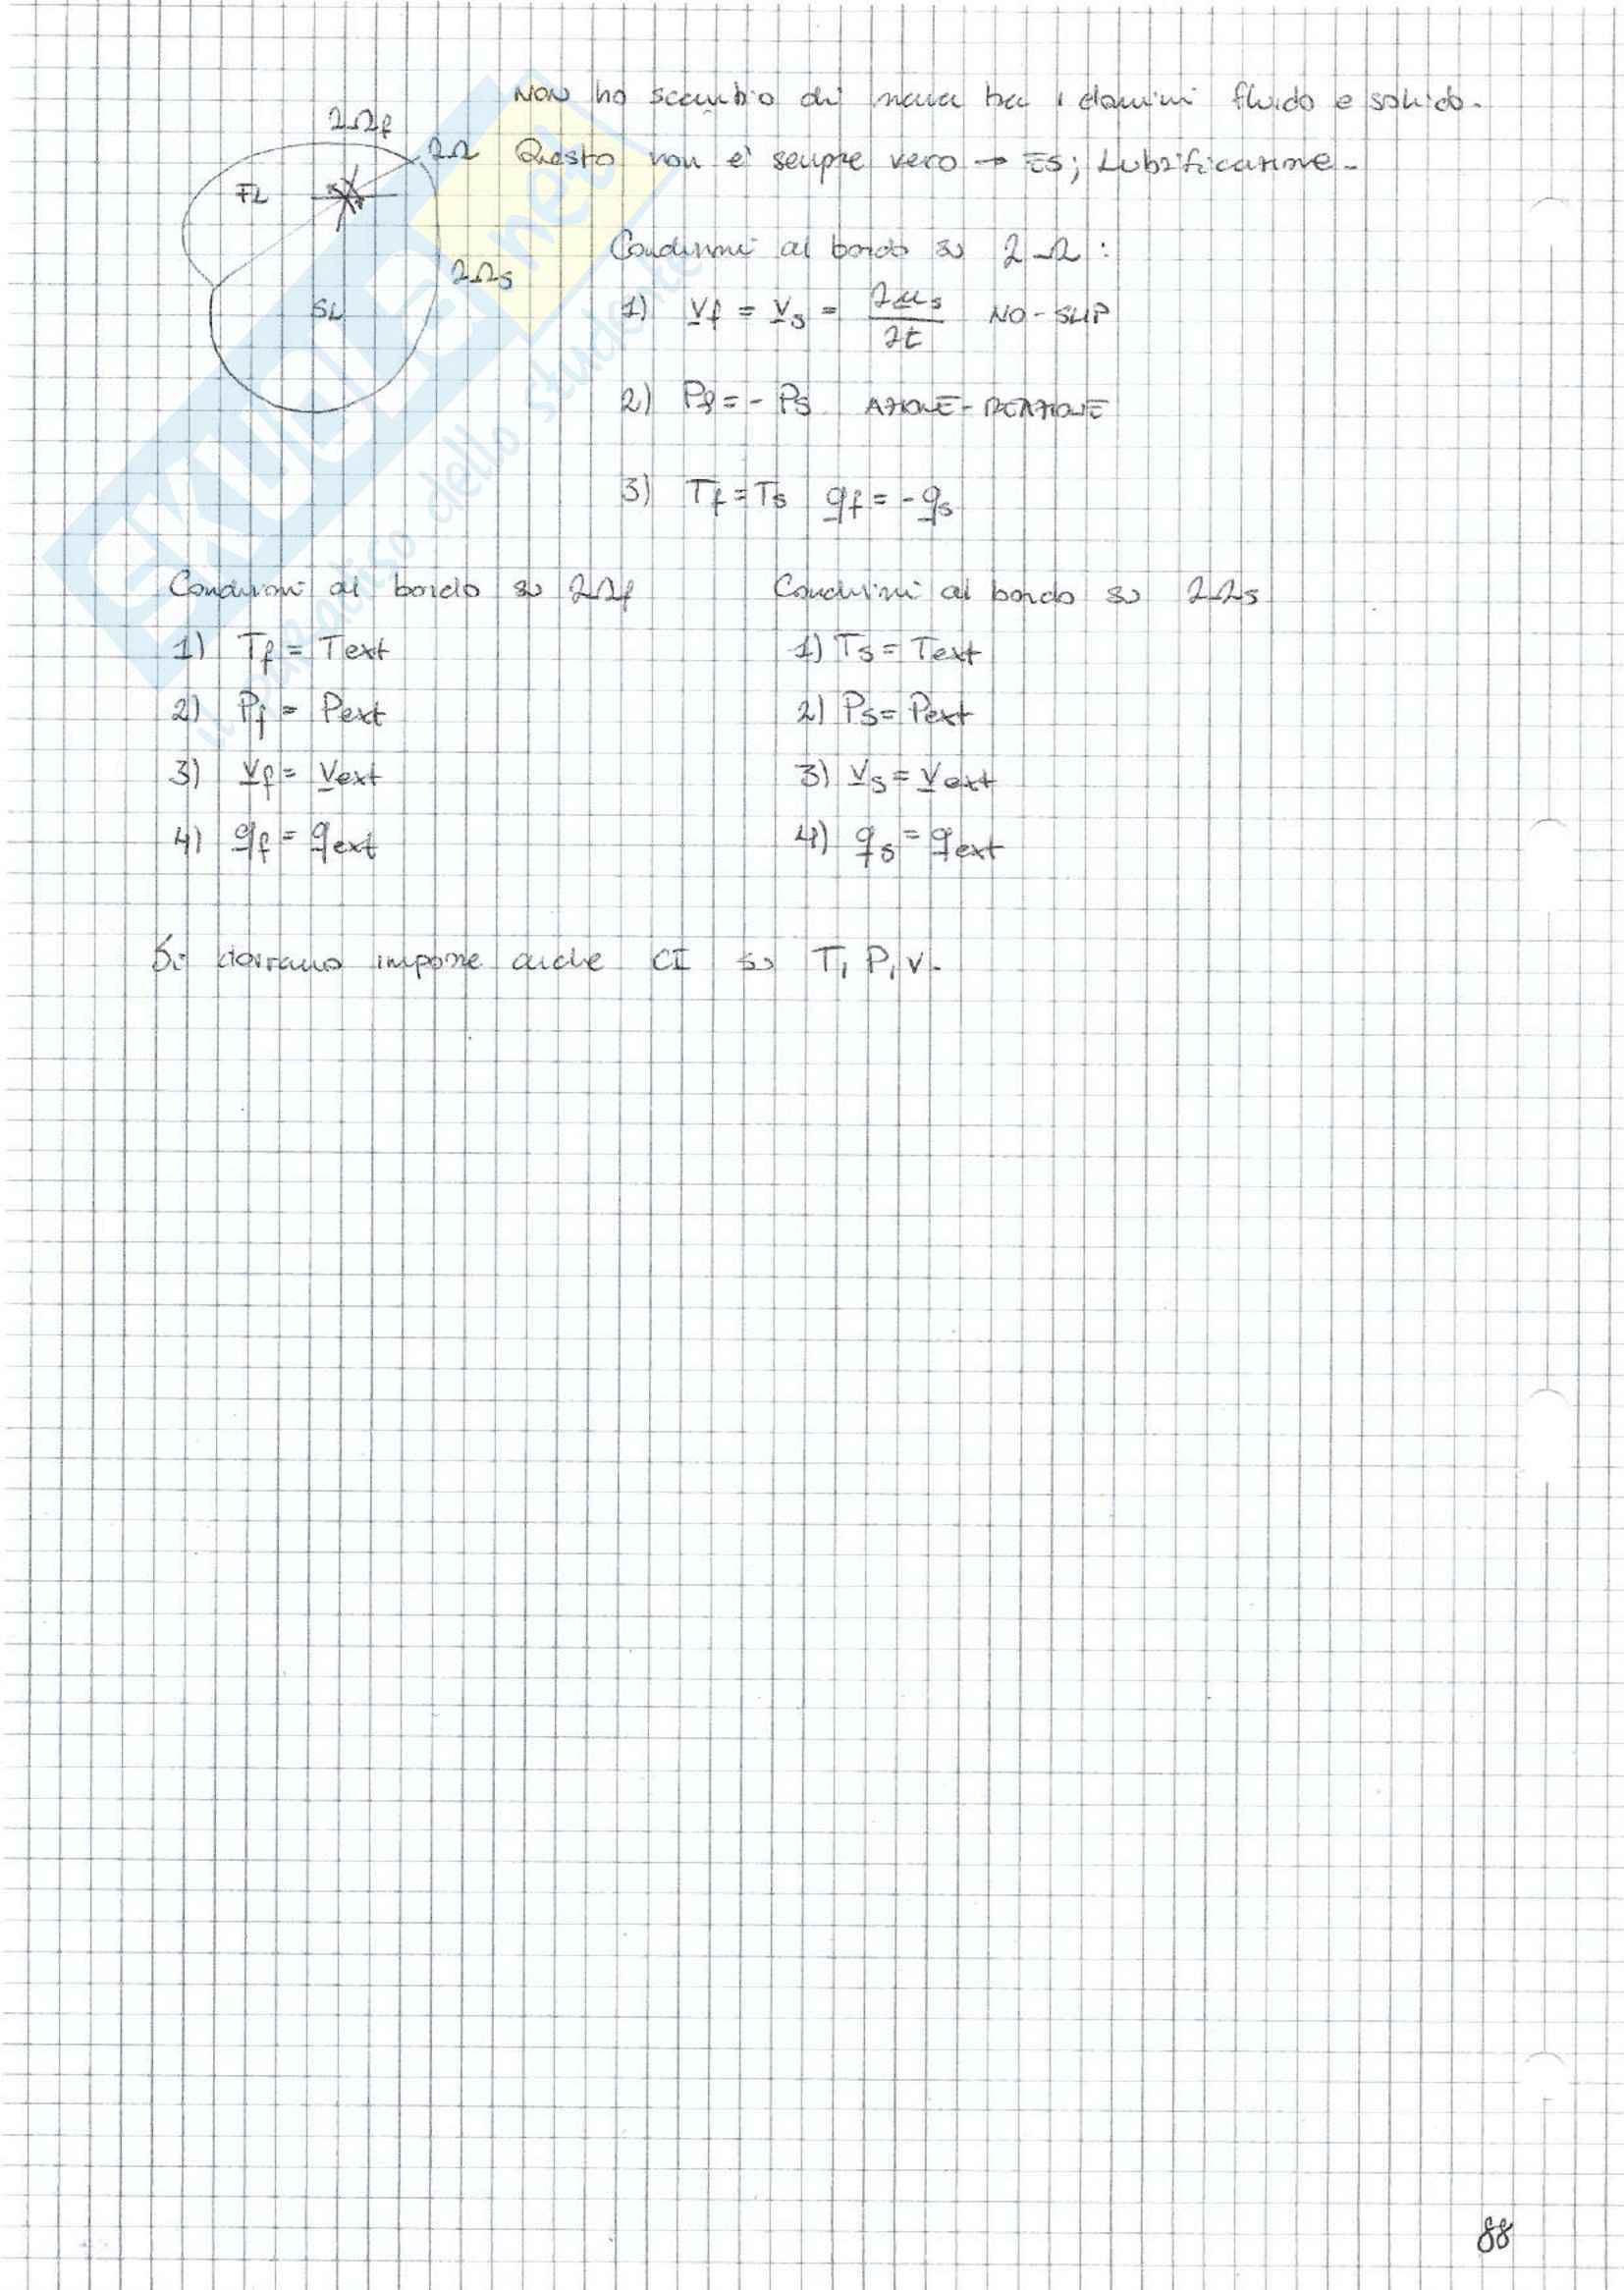 NON ho scambio di massa tra i domini fluido e solido.
∂Ωf
∂Ω Questo non e' sempre vero → ES; Lubrificazione.
FL
Condizioni al bordo su ∂Ω :
∂Ωs
SL
1) vf = vs = ∂us/∂t NO-SLIP
2) Pf = - Ps AZIONE-REAZIONE
3) Tf = Ts qf = - qs
Condizioni al bordo su ∂Ωf
1) Tf = Text
2) Pf = Pext
3) vf = vext
4) qf = qext
Condizioni al bordo su ∂Ωs
1) Ts = Text
2) Ps = Pext
3) vs = vext
4) qs = qext
Si dovranno imporre anche CI su T, P, v.
88
SKUOLA.net
il paradiso dello studente